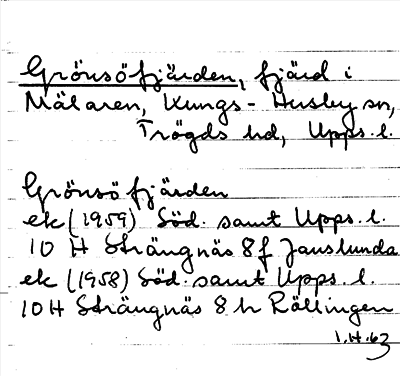 Grönsöfjärden, fjärd i
Mälaren, Kungs-Husby sn,
Trögds hd, Upps. l.
Grönsöfjärden
ek (1959) Söd. samt Upps. l.
10 H Strängnäs 8f Janslunda
ek (1958) Söd. samt Upps. l.
10H Strängnäs 8 h Rällingen
1.H.63